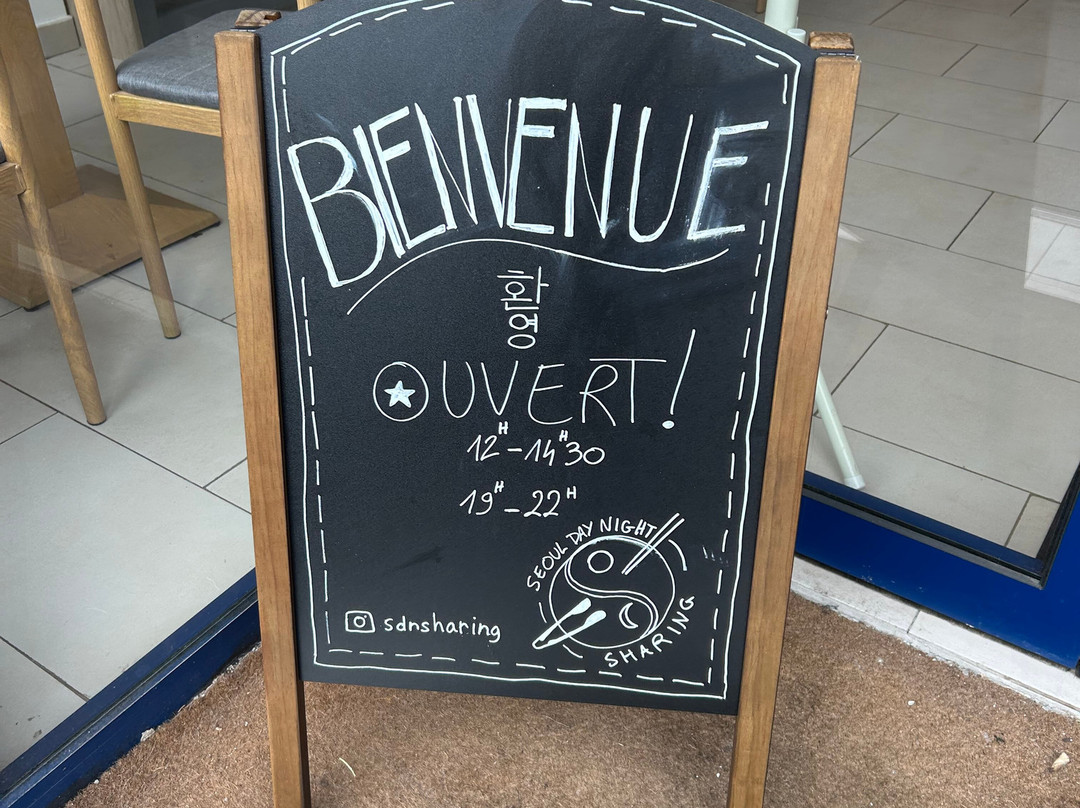 BIENVENUE
환
영
OUVERT!
12H-14H30
19H-22H
SEOUL DAY NIGHT
SHARING
sdnsharing